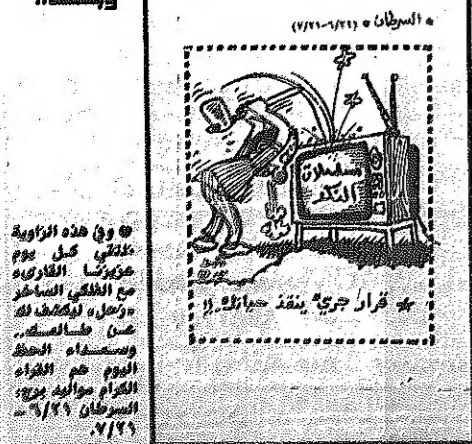 * السرطان * (٦/٢١-٧/٢١)
مسلسلات
النكد
* قرار جريء ينقذ حياتك..!!
● وفي هذه الزاوية
نلتقي كل يوم
عزيزنا القارىء
مع الفلكي الساخر
«زحل» ليكشف لك
عن طالعك..
وسعداء الحظ
اليوم هم القراء
الكرام مواليد برج:
السرطان ٦/٢١ -
٧/٢١.